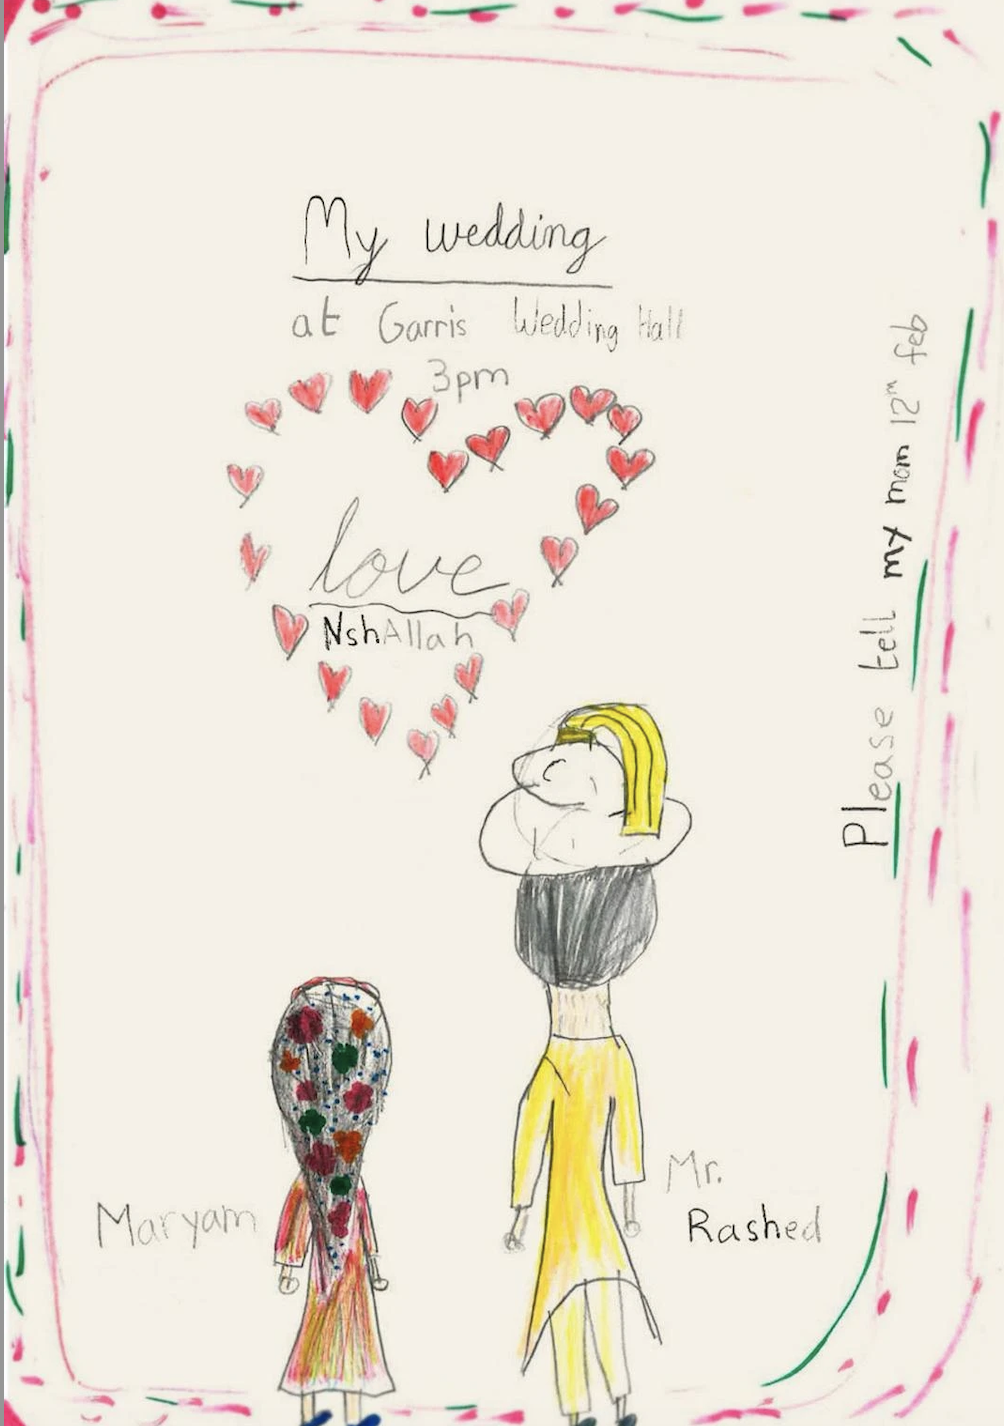 My wedding
at Garris Wedding Hall
3pm
love
NshAllah
Please tell my mom 12m feb
Maryam
Mr.
Rashed